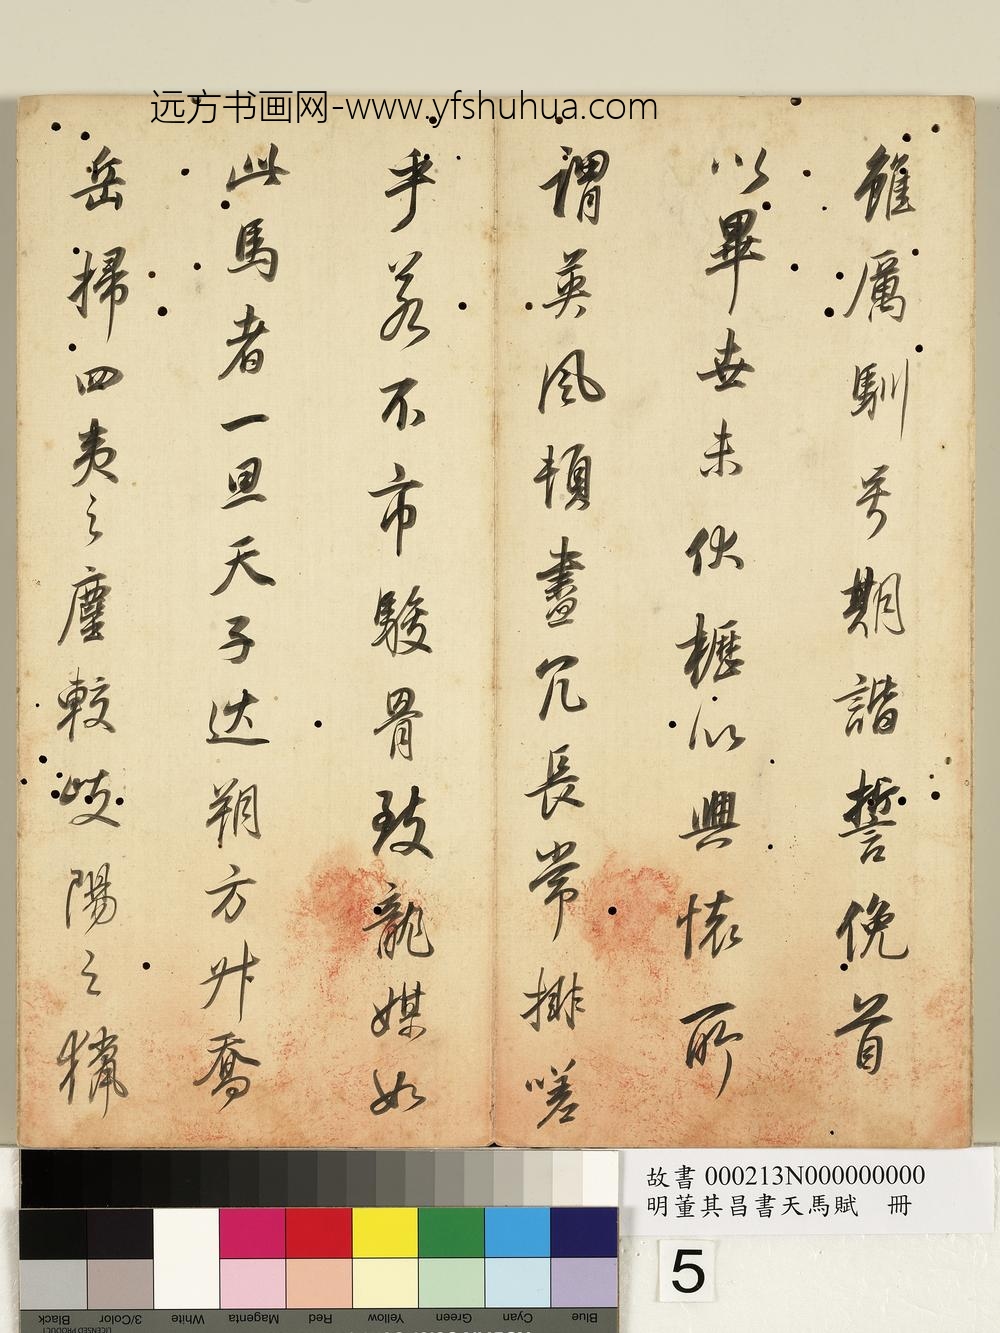 远方书画网-www.yfshuhua.com
雖厲馴兮期諧誓俛首
以畢世未伏櫪以興懷所
謂英風頓盡冗長常排嗟
乎若不市駿骨致龍媒如
此馬者一旦天子巡朔方升喬
岳掃四夷之塵較岐陽之獵
故書 000213N000000000
明董其昌書天馬賦 冊
5
Black
3/Color
White
Magenta
Red
Yellow
Green
Cyan
Blue
LICENSED PRODUCT